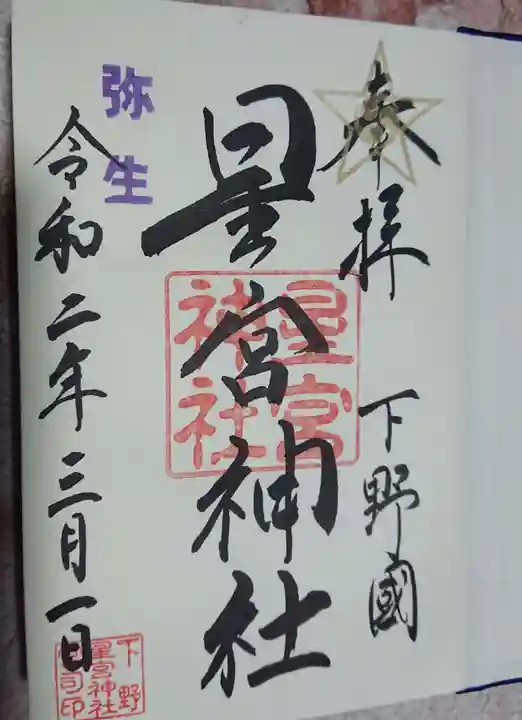 奉拝 下野國
星宮神社
星宮神社
弥生
令和二年三月一日
下野
星宮神社
宮司印